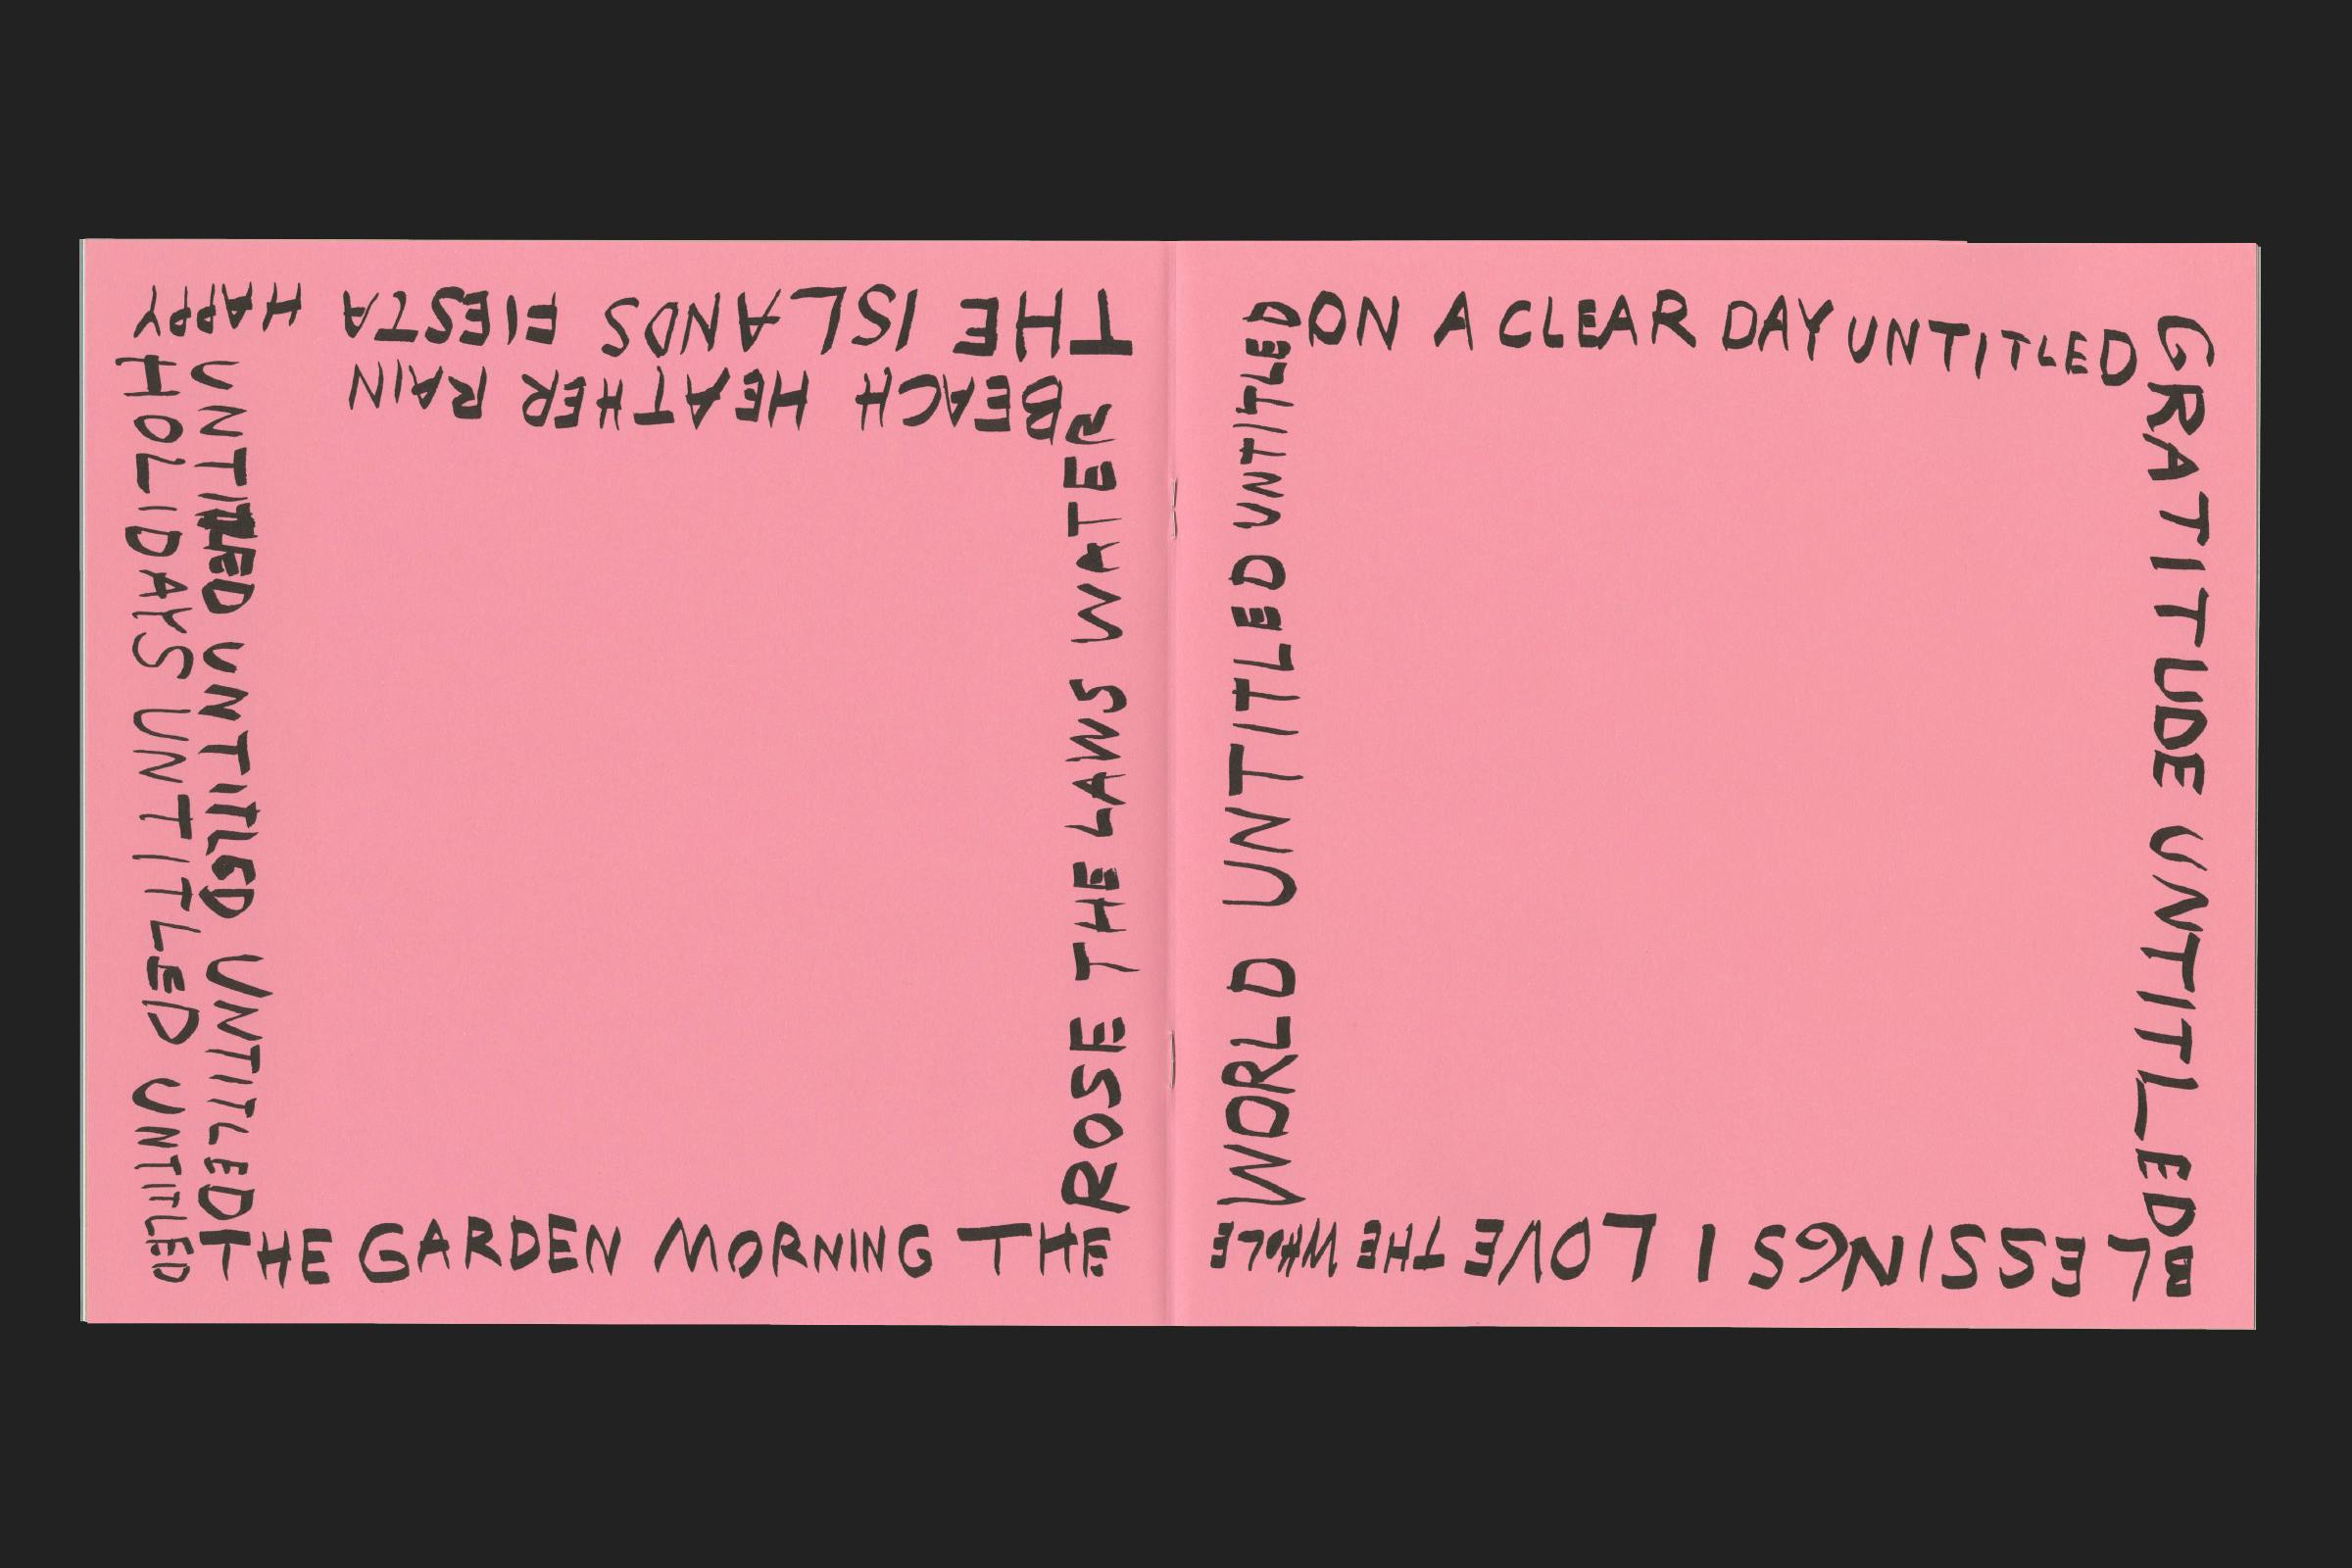 THE ISLANDS FIESTA HAPPY
HOLIDAYS UNTITLED UNTITLED
UNTITLED UNTITLED UNTITLED
THE GARDEN MORNING THE
ROSE THE LAWS WATER
BEACH HEATHER RAIN
ON A CLEAR DAY UNTITLED
GRATITUDE UNTITLED
BLESSINGS I LOVE THE WHOLE
WORLD UNTITLED UNTITLED